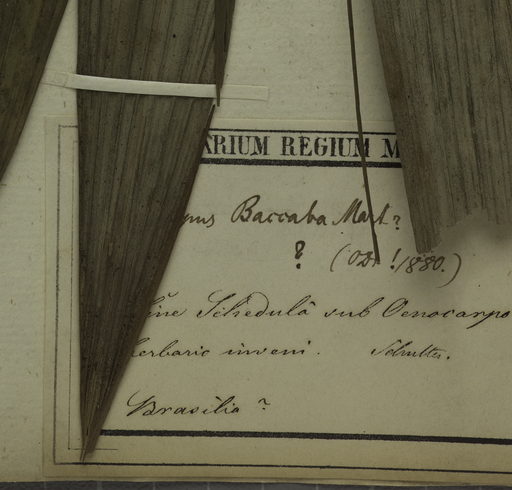 ARIUM REGIUM M
pus Baccaba Mart?
? (OD! 1880.)
sine Schedulâ sub Oenocarpo
herbario inveni. Schultes.
Brasilia?